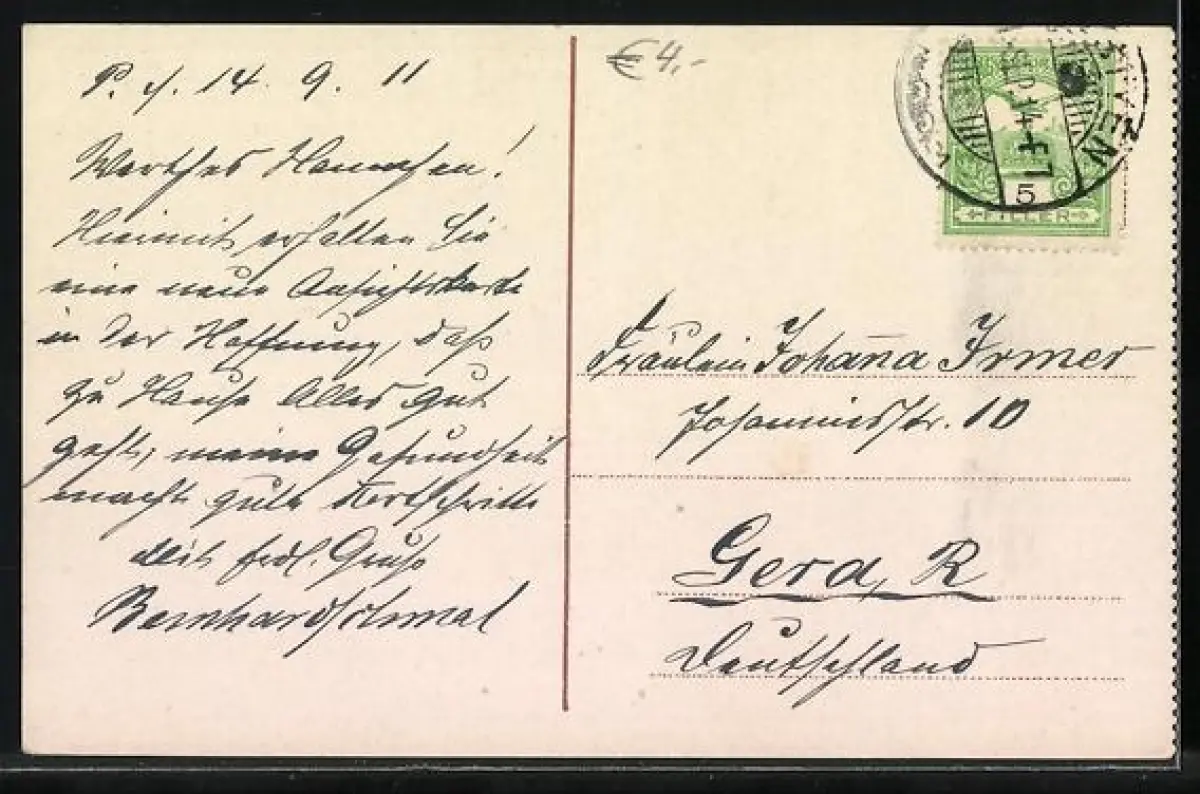 P. d. 14. 9. 11
Werthes Hannchen!
Hiermit erhalten Sie
eine neue Ansichtskarte
in der Hoffnung, daß
zu Hause Alles gut
geht, meine Gesundheit
macht gute Fortschritte
Mit frdl. Gruß
Bernhard Schmal
€4,-
5
FILLER
Fräulein Johan̄a Irmer
Johannisstr. 10
Gera, R
Deutschland